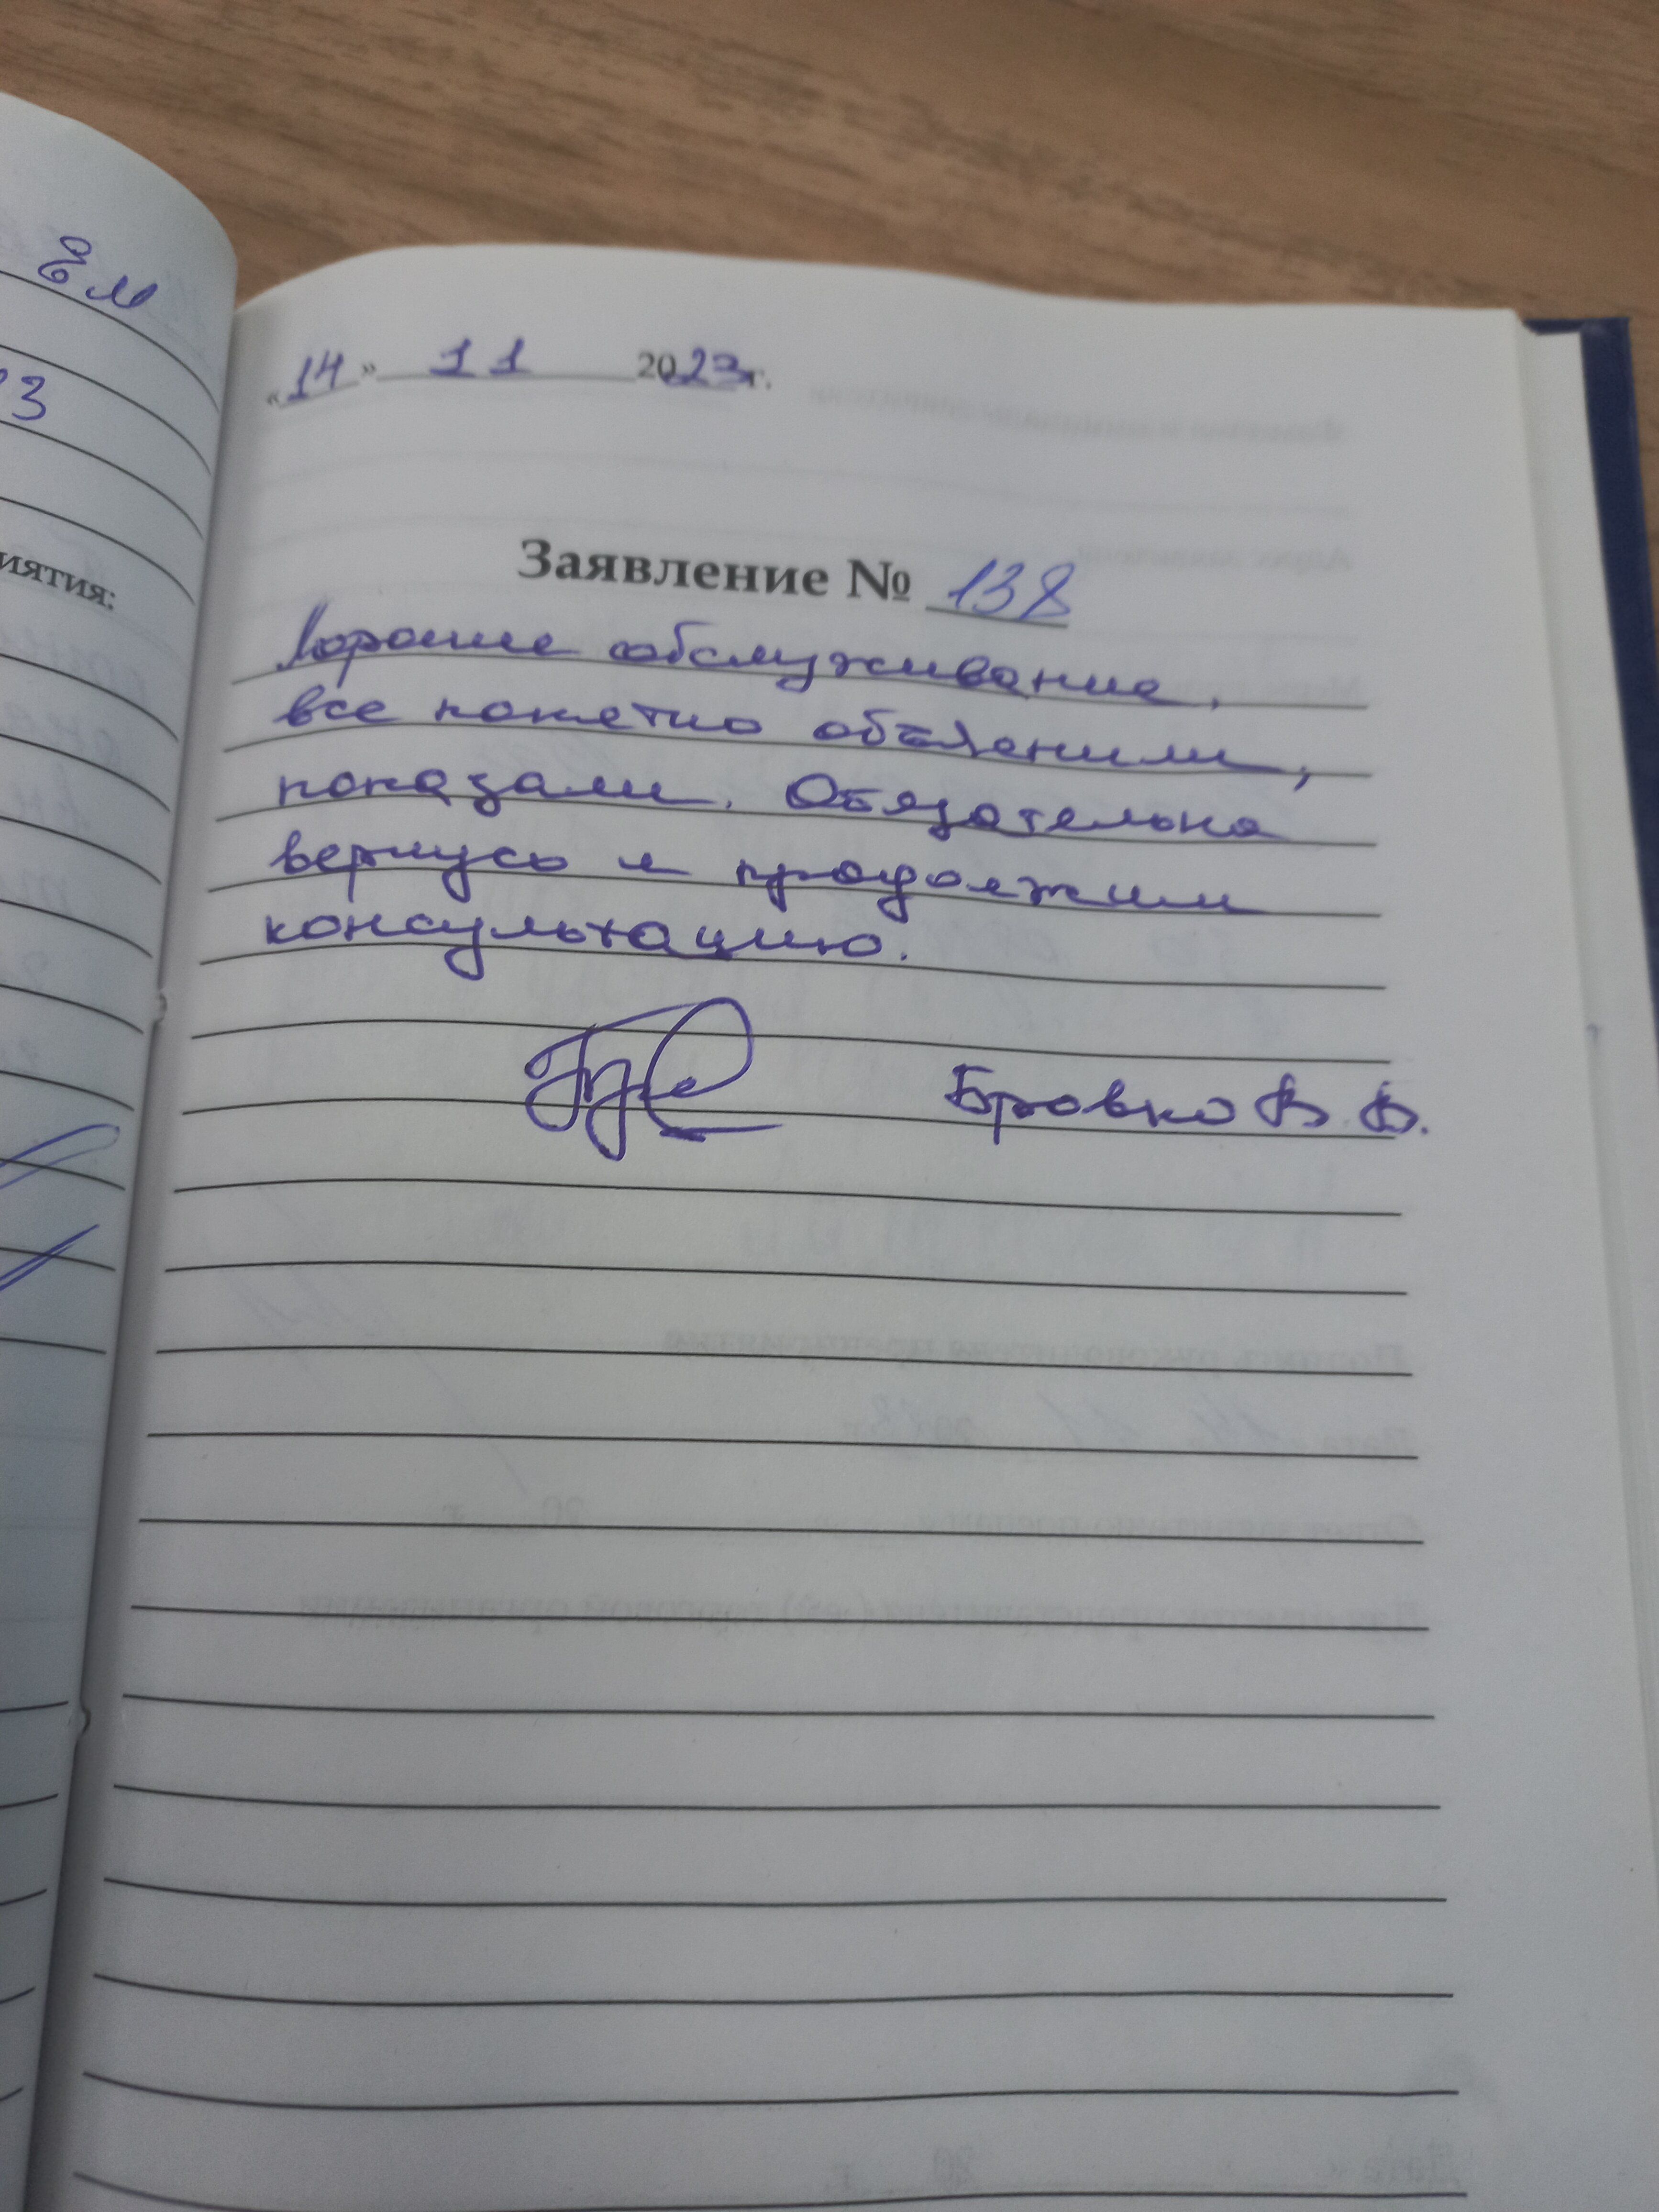 ЕМ
3
иятия:
«14» 11 2023г.
Заявление № 138
Хорошее обслуживание,
все понятно объяснили,
показали. Обязательно
вернусь и продолжим
консультацию.
Бровко В. В.